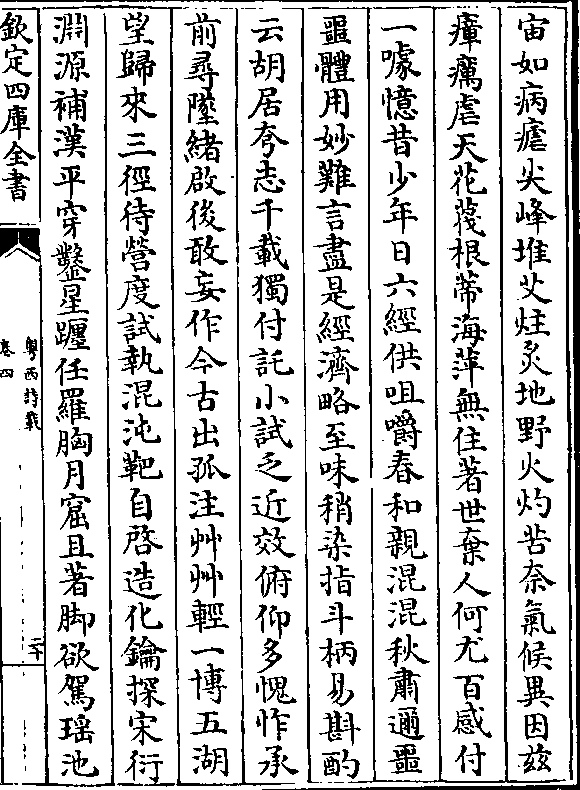 宙如病瘧尖峰堆艾炷炙地野火灼苦奈氣候異因兹
瘴癘虐天花蔑根蒂海萍無住著世棄人何尤百感付
一噱憶昔少年日六經供咀嚼春和親混混秋肅邇噩
噩體用妙難言盡是經濟略至味稍染指斗柄易斟酌
云胡居夸志千載獨付託小試乏近效俯仰多愧怍承
前尋墜緒啟後敢妄作今古出孤注艸艸輕一博五湖
望歸來三徑待營度試執混沌靶自啓造化鑰探宋衍
淵源補漢平穿鑿星躔任羅胸月窟且著脚欲駕瑶池
欽定四庫全書
粤西詩載
卷四
二十